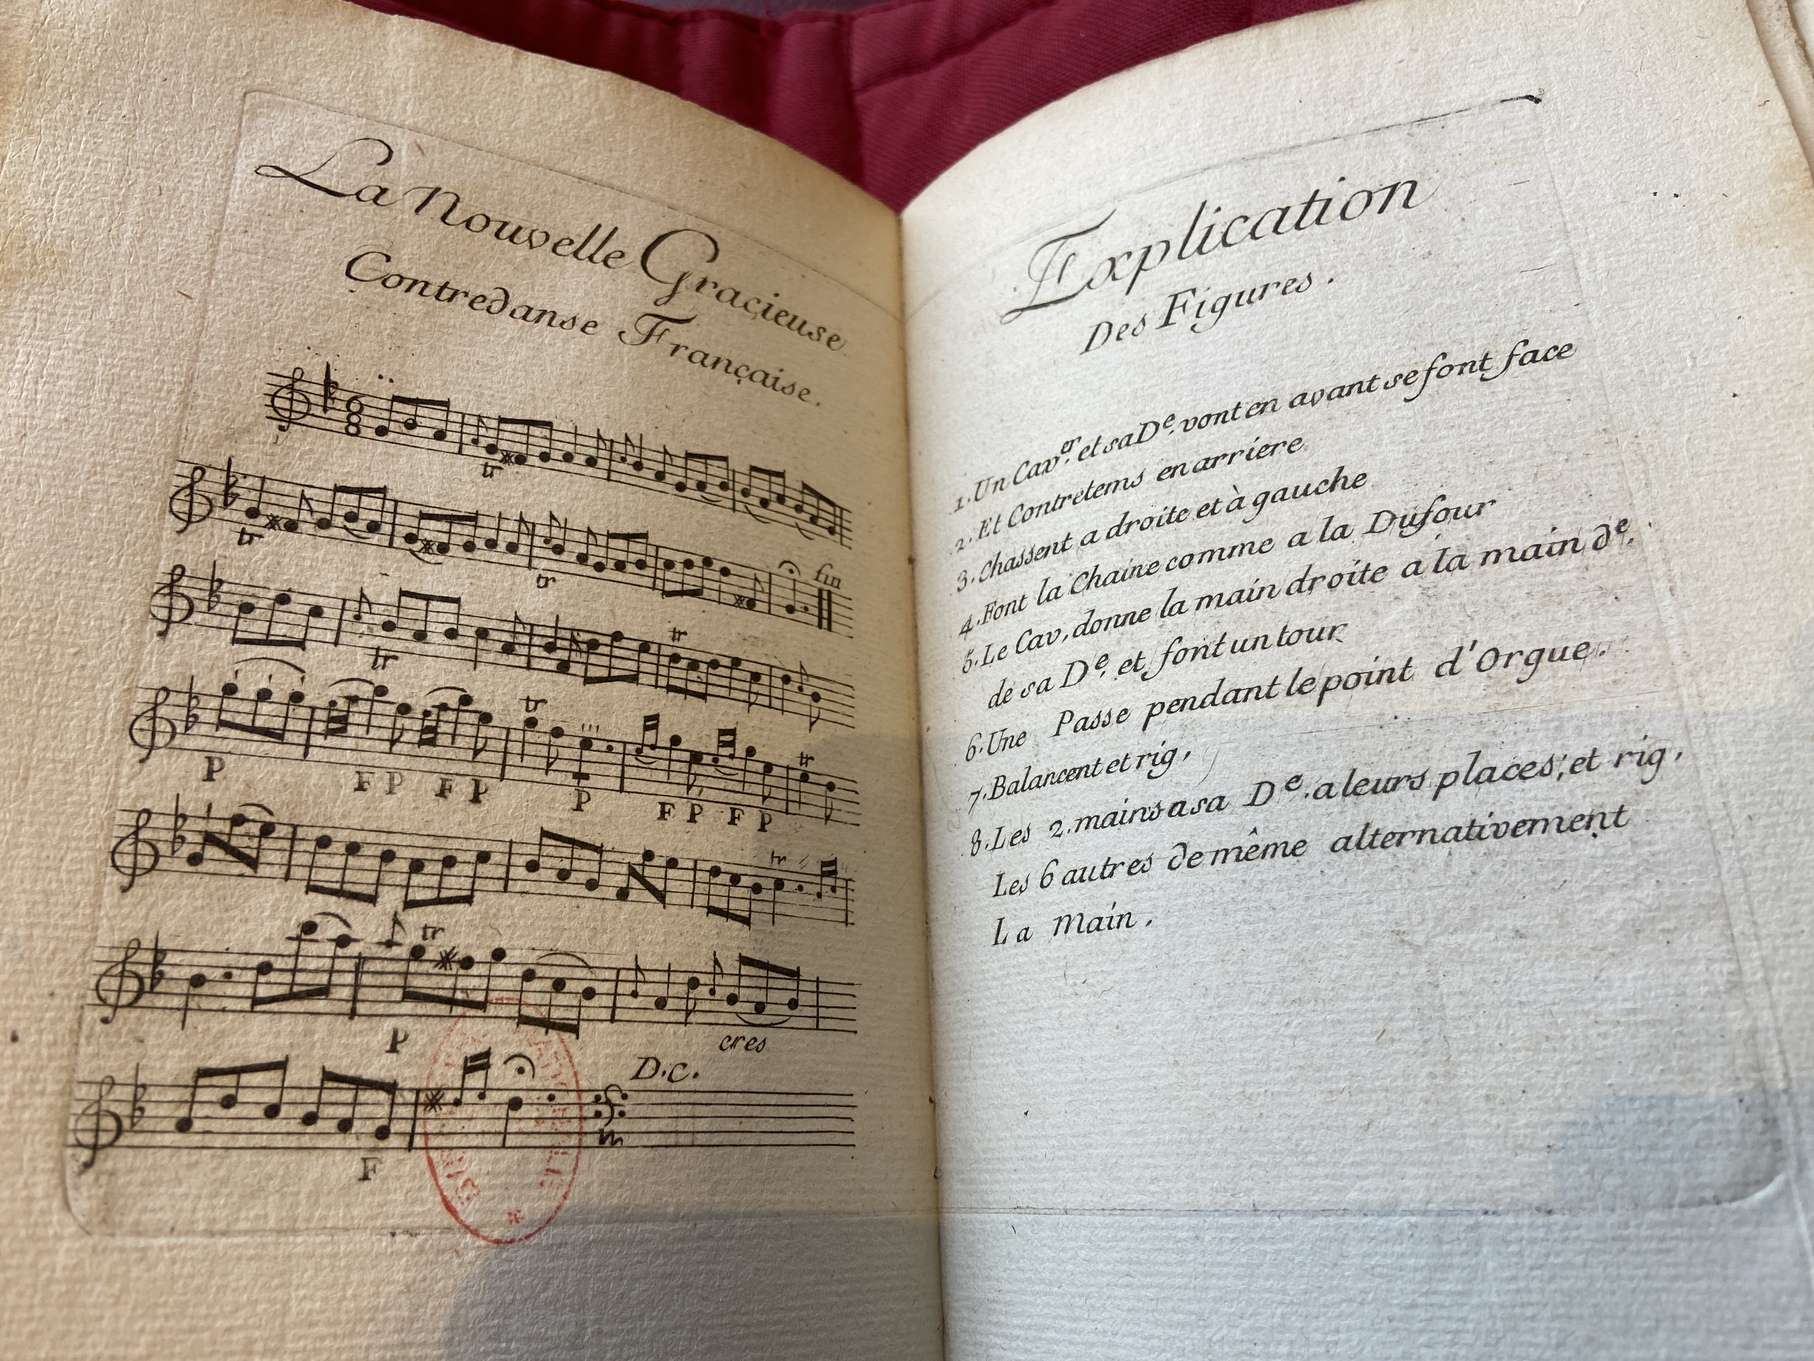 La Nouvelle Gracieuse
Contredanse Française.
6
8
tr
tr
tr
fin
tr
tr
tr
tr
P
F P
F P
P
F P
F P
tr
tr
P
cres
D.c.
F
Explication
Des Figures.
1. Un Cav.er et sa De. vont en avant se font face
2. Et Contretems en arriere
3. Chassent a droite et à gauche
4. Font la Chaine comme a la Dufour
5. Le Cav. donne la main droite a la main de.
de sa De. et font un tour
6. Une Passe pendant le point d'Orgue.
7. Balancent et rig,
8. Les 2. mains a sa De. a leurs places, et rig,
Les 6 autres de même alternativement
La Main.